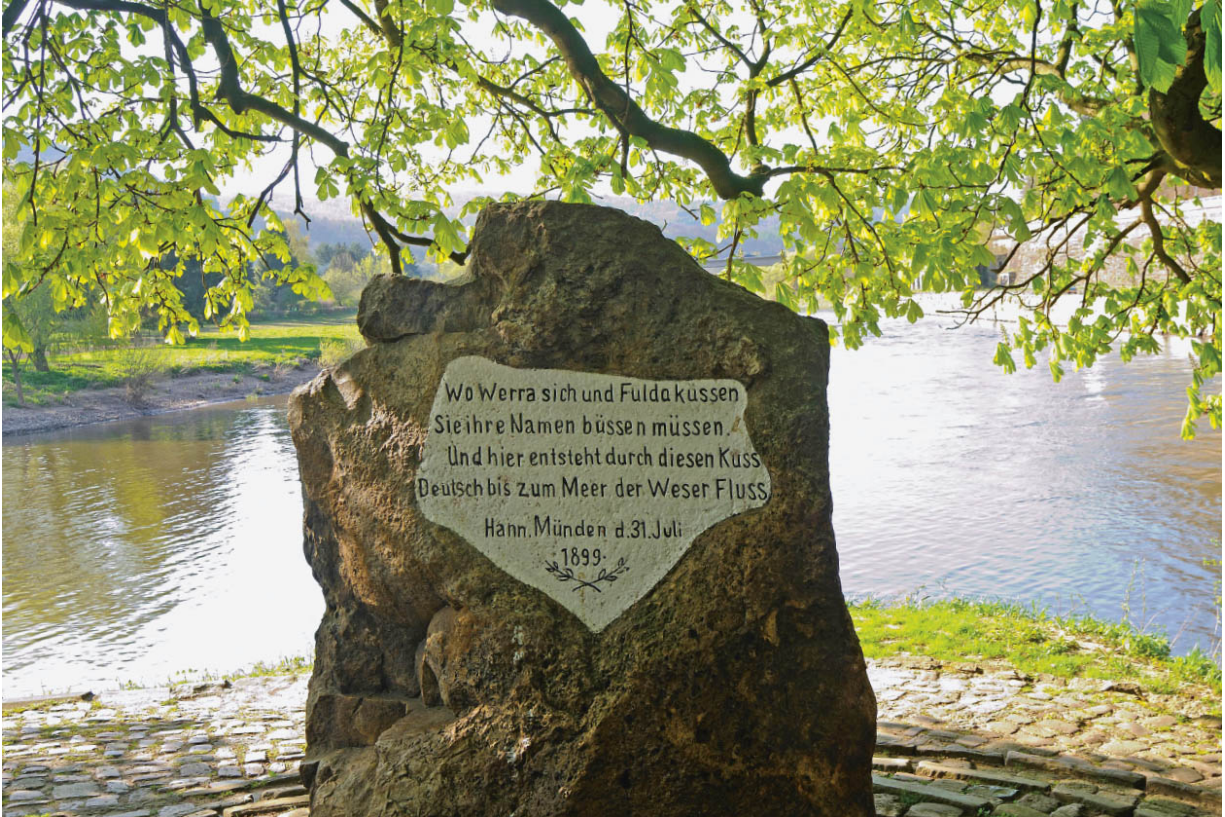 Wo Werra sich und Fulda küssen
Sie ihre Namen büssen müssen.
Und hier entsteht durch diesen Kuss
Deutsch bis zum Meer der Weser Fluss
Hann. Münden d. 31. Juli
1899.